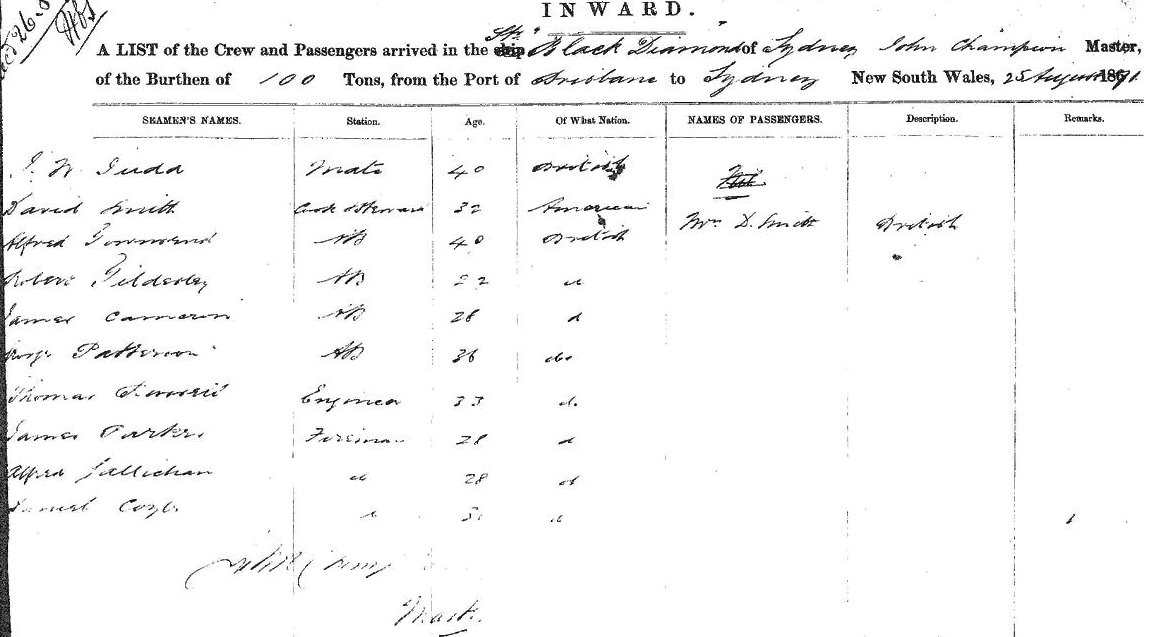 INWARD.
A LIST of the Crew and Passengers arrived in the ship Str "Black Diamond" of Sydney John Champion Master,
of the Burthen of 100 Tons, from the Port of Brisbane to Sydney New South Wales, 25 August 1871
SEAMEN'S NAMES. Station. Age. Of What Nation. NAMES OF PASSENGERS. Description. Remarks.
J. W. Judd Mate 40 British Nil
David Smith Cook & Steward 32 American Mrs D. Smith British
Alfred Townsend AB 40 British
Robert Gilderley AB 22 d
James Cameron AB 28 d
George Patterson AB 36 do
Thomas Engineer 33 d.
James Parker Fireman 28 d
Alfred Gallichan d 28 d
Coyle d d
John Champ
Mast.